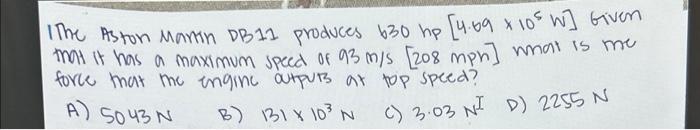 1 The Aston Martin DB11 produces 630 hp [4.69 x 10⁵ W] Given
that it has a maximum speed of 93 m/s [208 mph] what is the
force that the engine outputs at top speed?
A) 5043 N B) 131 x 10³ N C) 3.03 N^I D) 2255 N